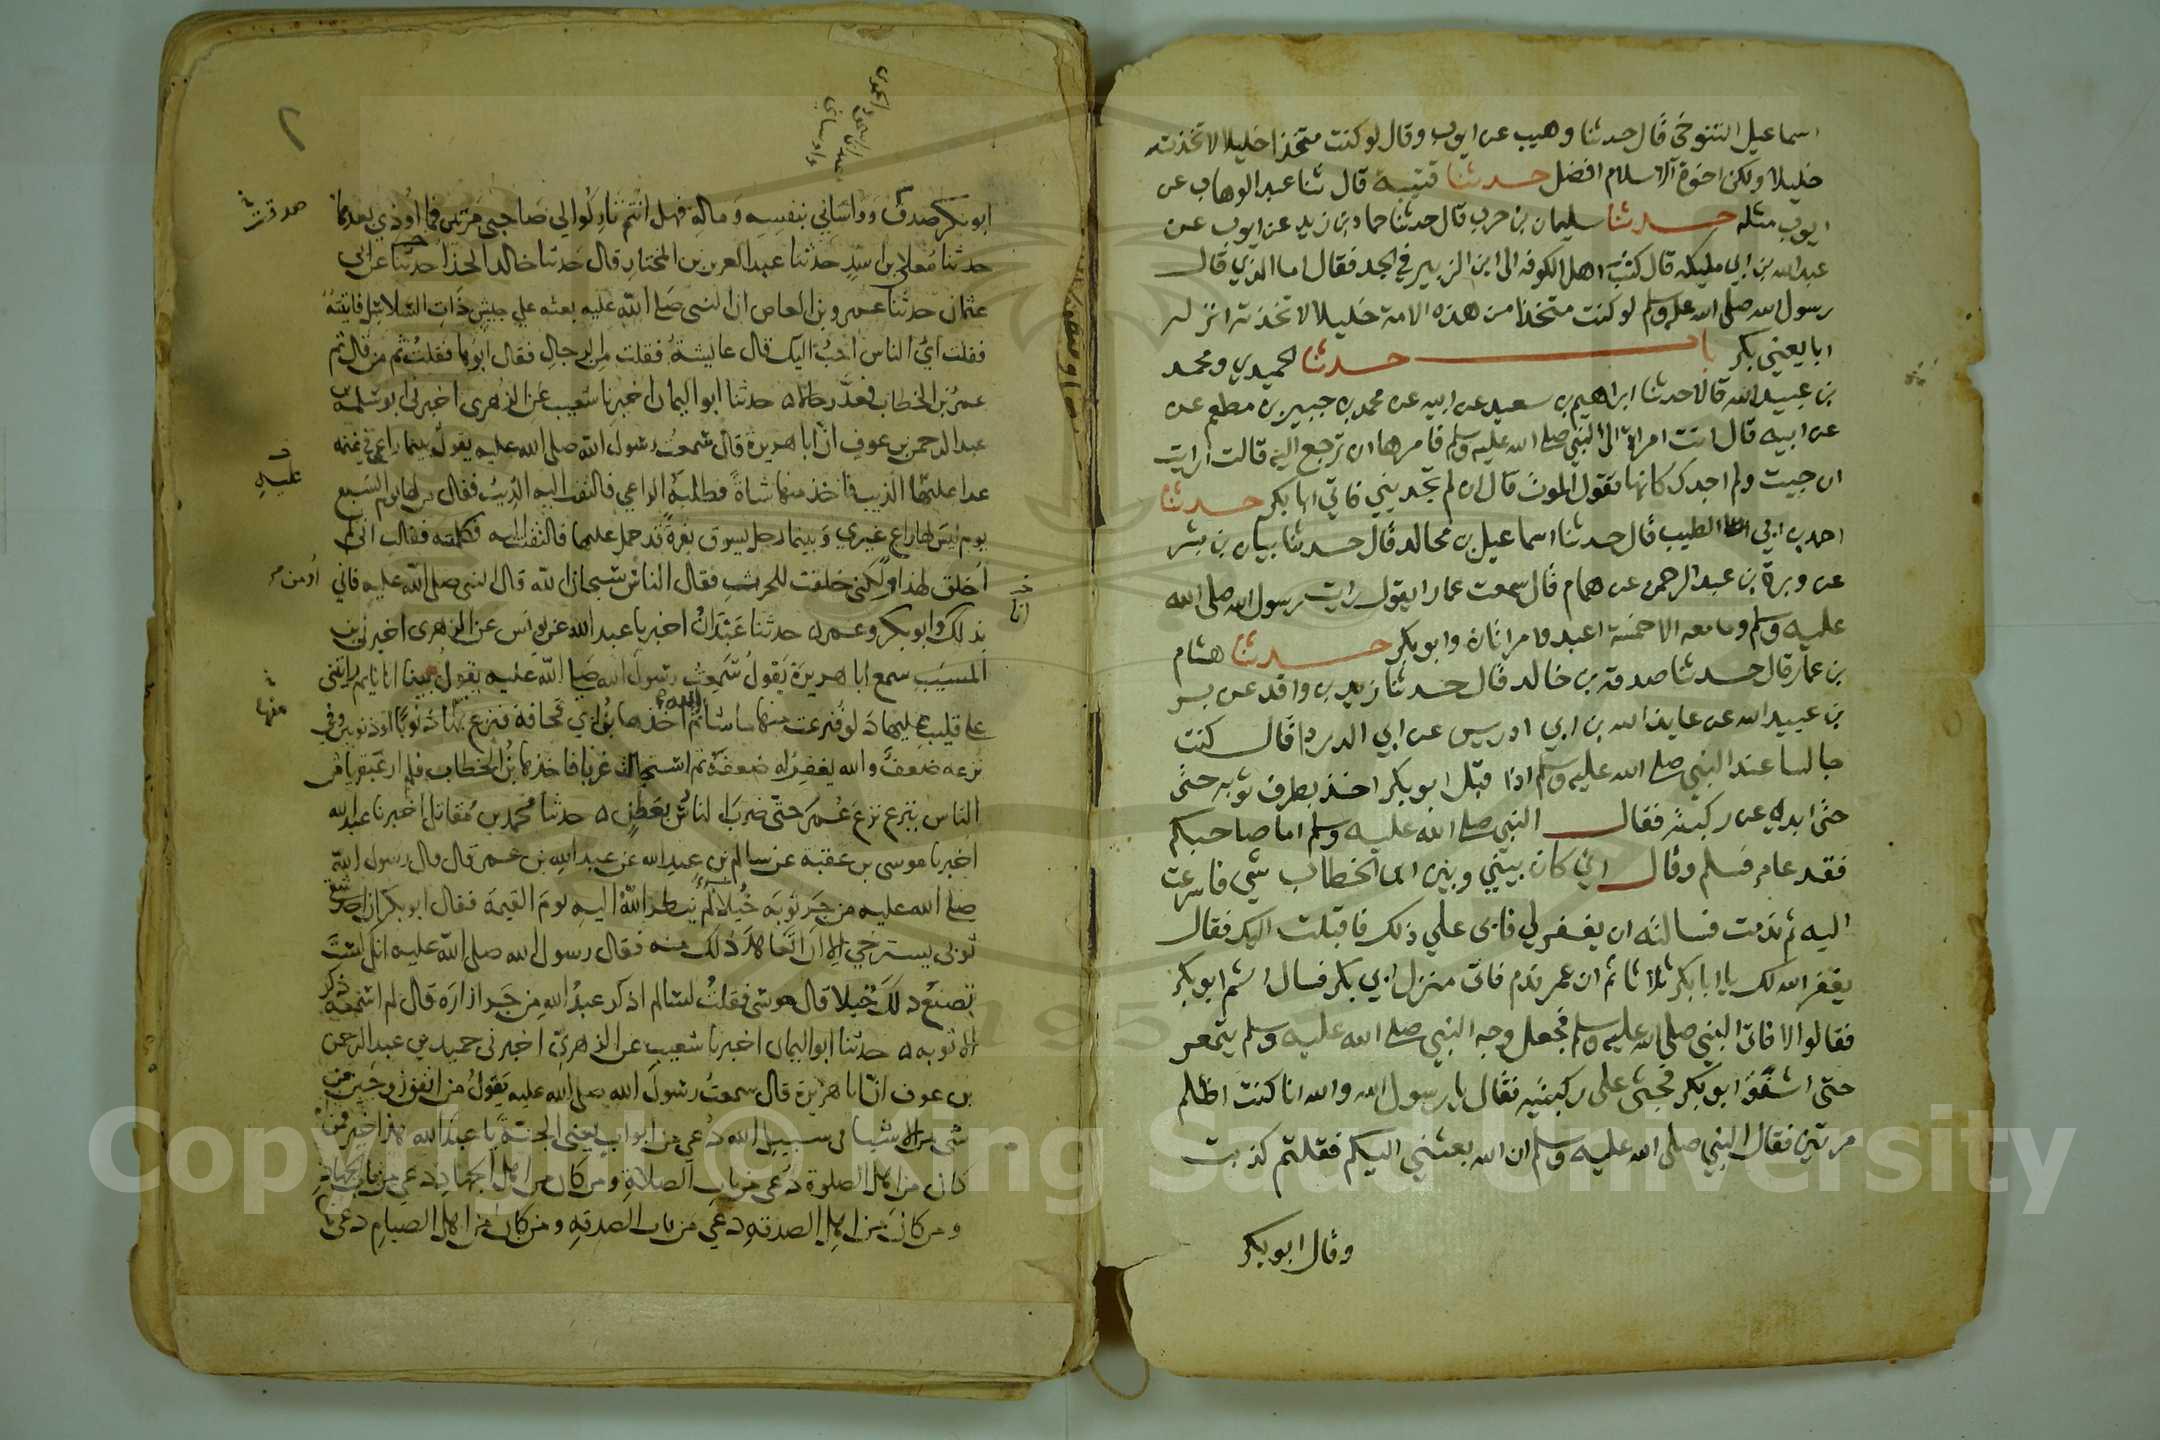 اسماعيل التنوخي قال حدثنا وهيب عن ايوب وقال لو كنت متخذا خليلا لاتخذته
خليلا ولكن اخوة الاسلام افضل حدثنا قتيبة قال ثنا عبد الوهاب عن
ايوب مثله حدثنا سليمان بن حرب قال حدثنا حماد بن زيد عن ايوب عن
عبد الله بن ابي مليكه قال كتب اهل الكوفه الى ابن الزبير في الجد فقال اما الذي قال
رسول الله صلى الله عليه وسلم لو كنت متخذا من هذه الامة خليلا لاتخذته انزله
ابا يعني بكر باب حدثنا الحميدي ومحمد
بن عبيد الله قالا حدثنا ابراهيم بن سعيد عن ابيه عن محمد بن جبير بن مطعم عن
عن ابيه قال اتت امراة الى النبي صلى الله عليه وسلم فامرها ان ترجع اليه قالت ارايت
ان جيت ولم اجدك كانها تقول الموت قال ان لم تجديني فاتي ابا بكر حدثنا
احمد بن ابي الطيب قال حدثنا اسماعيل بن مجالد قال حدثنا بيان بن بشر
عن وبرة بن عبد الرحمن عن همام قال سمعت عمارا يقول رايت رسول الله صلى الله
عليه وسلم وما معه الا خمسة اعبد وامراتان وابو بكر حدثنا هشام
بن عمار قال حدثنا صدقة بن خالد قال حدثنا زيد بن واقد عن بسر
بن عبيد الله عن عايذ الله بن ابي ادريس عن ابي الدردا قال كنت
جالسا عند النبي صلى الله عليه وسلم اذا قبل ابو بكر اخذ بطرف ثوبه حتى
حتى ابدى عن ركبته فقال النبي صلى الله عليه وسلم اما صاحبكم
فقد عامر فسلم وقال اني كان بيني وبين ابن الخطاب شي فاسرعت
اليه ثم ندمت فسالته ان يغفر لي فابى علي ذلك فاقبلت اليك فقال
يغفر الله لك يا ابا بكر ثلاثا ثم ان عمر ندم فاتى منزل ابي بكر فسال اثم ابو بكر
فقالوا لا فاتى النبي صلى الله عليه وسلم فجعل وجه النبي صلى الله عليه وسلم يتمعر
حتى اشفق ابو بكر فجثى على ركبتيه فقال يا رسول الله والله انا كنت اظلم
مرتين فقال النبي صلى الله عليه وسلم ان الله بعثني اليكم فقلتم كذبت
وقال ابو بكر
ابو بكر صدق وواساني بنفسه وماله فهل انتم تاركوا لي صاحبي مرتين فما اوذي بعدها
حدثنا معلى بن اسد حدثنا عبد العزيز بن المختار قال حدثنا خالد الحذا حدثنا عن ابي
عثمان حدثنا عمرو بن العاص ان النبي صلى الله عليه بعثه علي جيش ذات السلاسل فاتيته
فقلت اي الناس احب اليك قال عائشة فقلت من الرجال فقال ابوها فقلت ثم من قال ثم
عمر بن الخطاب فعد رجالا حدثنا ابو اليمان اخبرنا شعيب عن الزهري اخبرني ابو سلمة بن
عبد الرحمن بن عوف ان ابا هريرة قال سمعت رسول الله صلى الله عليه يقول بينما راع في غنمه
عدا عليها الذيب فاخذ منها شاة فطلبه الراعي فالتفت اليه الذيب فقال من لها يوم السبع
يوم ليس لها راع غيري وبينما رجل يسوق بقرة قد حمل عليها فالتفتت اليه فكلمته فقالت اني لم
اخلق لهذا ولكني خلقت للحرث فقال الناس سبحان الله قال النبي صلى الله عليه فاني
بذلك وابو بكر وعمر حدثنا عبدان اخبرنا عبد الله عن يونس عن الزهري اخبرني بن
المسيب سمع ابا هريرة يقول سمعت رسول الله صلى الله عليه يقول بينا انا نايم رايتني
على قليب عليها دلو فنزعت منها ما شا الله ثم اخذها بن ابي قحافة فنزع بها ذنوبا او ذنوبين وفي
نزعه ضعف والله يغفر له ضعفه ثم استحالت غربا فاخذها بن الخطاب فلم ار عبقريا من
الناس ينزع نزع عمر حتى ضرب الناس بعطن حدثنا محمد بن مقاتل اخبرنا عبد الله
اخبرنا موسى بن عقبة عن سالم بن عبد الله عن عبد الله بن عمر قال قال رسول الله
صلى الله عليه من جر ثوبه خيلا لم ينظر الله اليه يوم القيمة فقال ابو بكر ان احد شقي
ثوبي يسترخي الا ان اتعاهد ذلك منه فقال رسول الله صلى الله عليه انك لست
تصنع ذلك خيلا قال موسى فقلت لسالم اذكر عبد الله من جر ازاره قال لم اسمعه ذكر
الا ثوبه حدثنا ابو اليمان اخبرنا شعيب عن الزهري اخبرني حميد بن عبد الرحمن
بن عوف ان ابا هريرة قال سمعت رسول الله صلى الله عليه يقول من انفق زوجين من
شي من الاشيا في سبيل الله دعي من ابواب يعني الجنة يا عبد الله هذا خير فمن
كان من اهل الصلوة دعي من باب الصلاة ومن كان من اهل الجهاد دعي من باب الجهاد
ومن كان من اهل الصدقه دعي من باب الصدقه ومن كان من اهل الصيام دعي
صدقت
عليه
اومن
انا
منها
٢
Copyright © King Saud University
1957